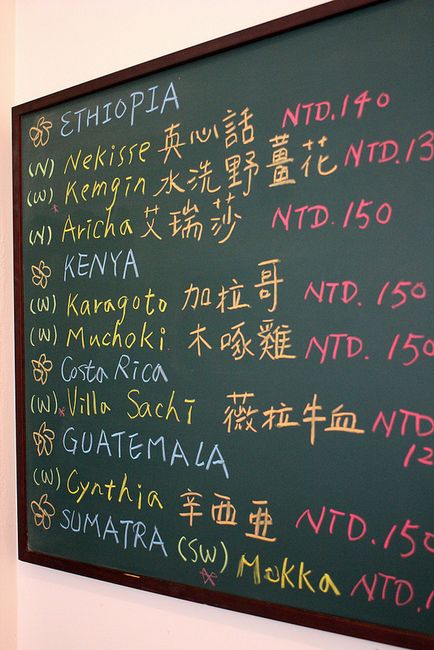 ETHIOPIA
(N) Nekisse 真心話 NTD.140
(W) Kemgin 水洗野薑花 NTD.13
(N) Aricha 艾瑞莎 NTD.150
KENYA
(W) Karagoto 加拉哥 NTD.150
(W) Muchoki 木啄雞 NTD.150
Costa Rica
(W) Villa Sachī 薇拉牛血 NTD
12
GUATEMALA
(W) Cynthia 辛西亜 NTD.150
SUMATRA (SW) Mokka NTD.1